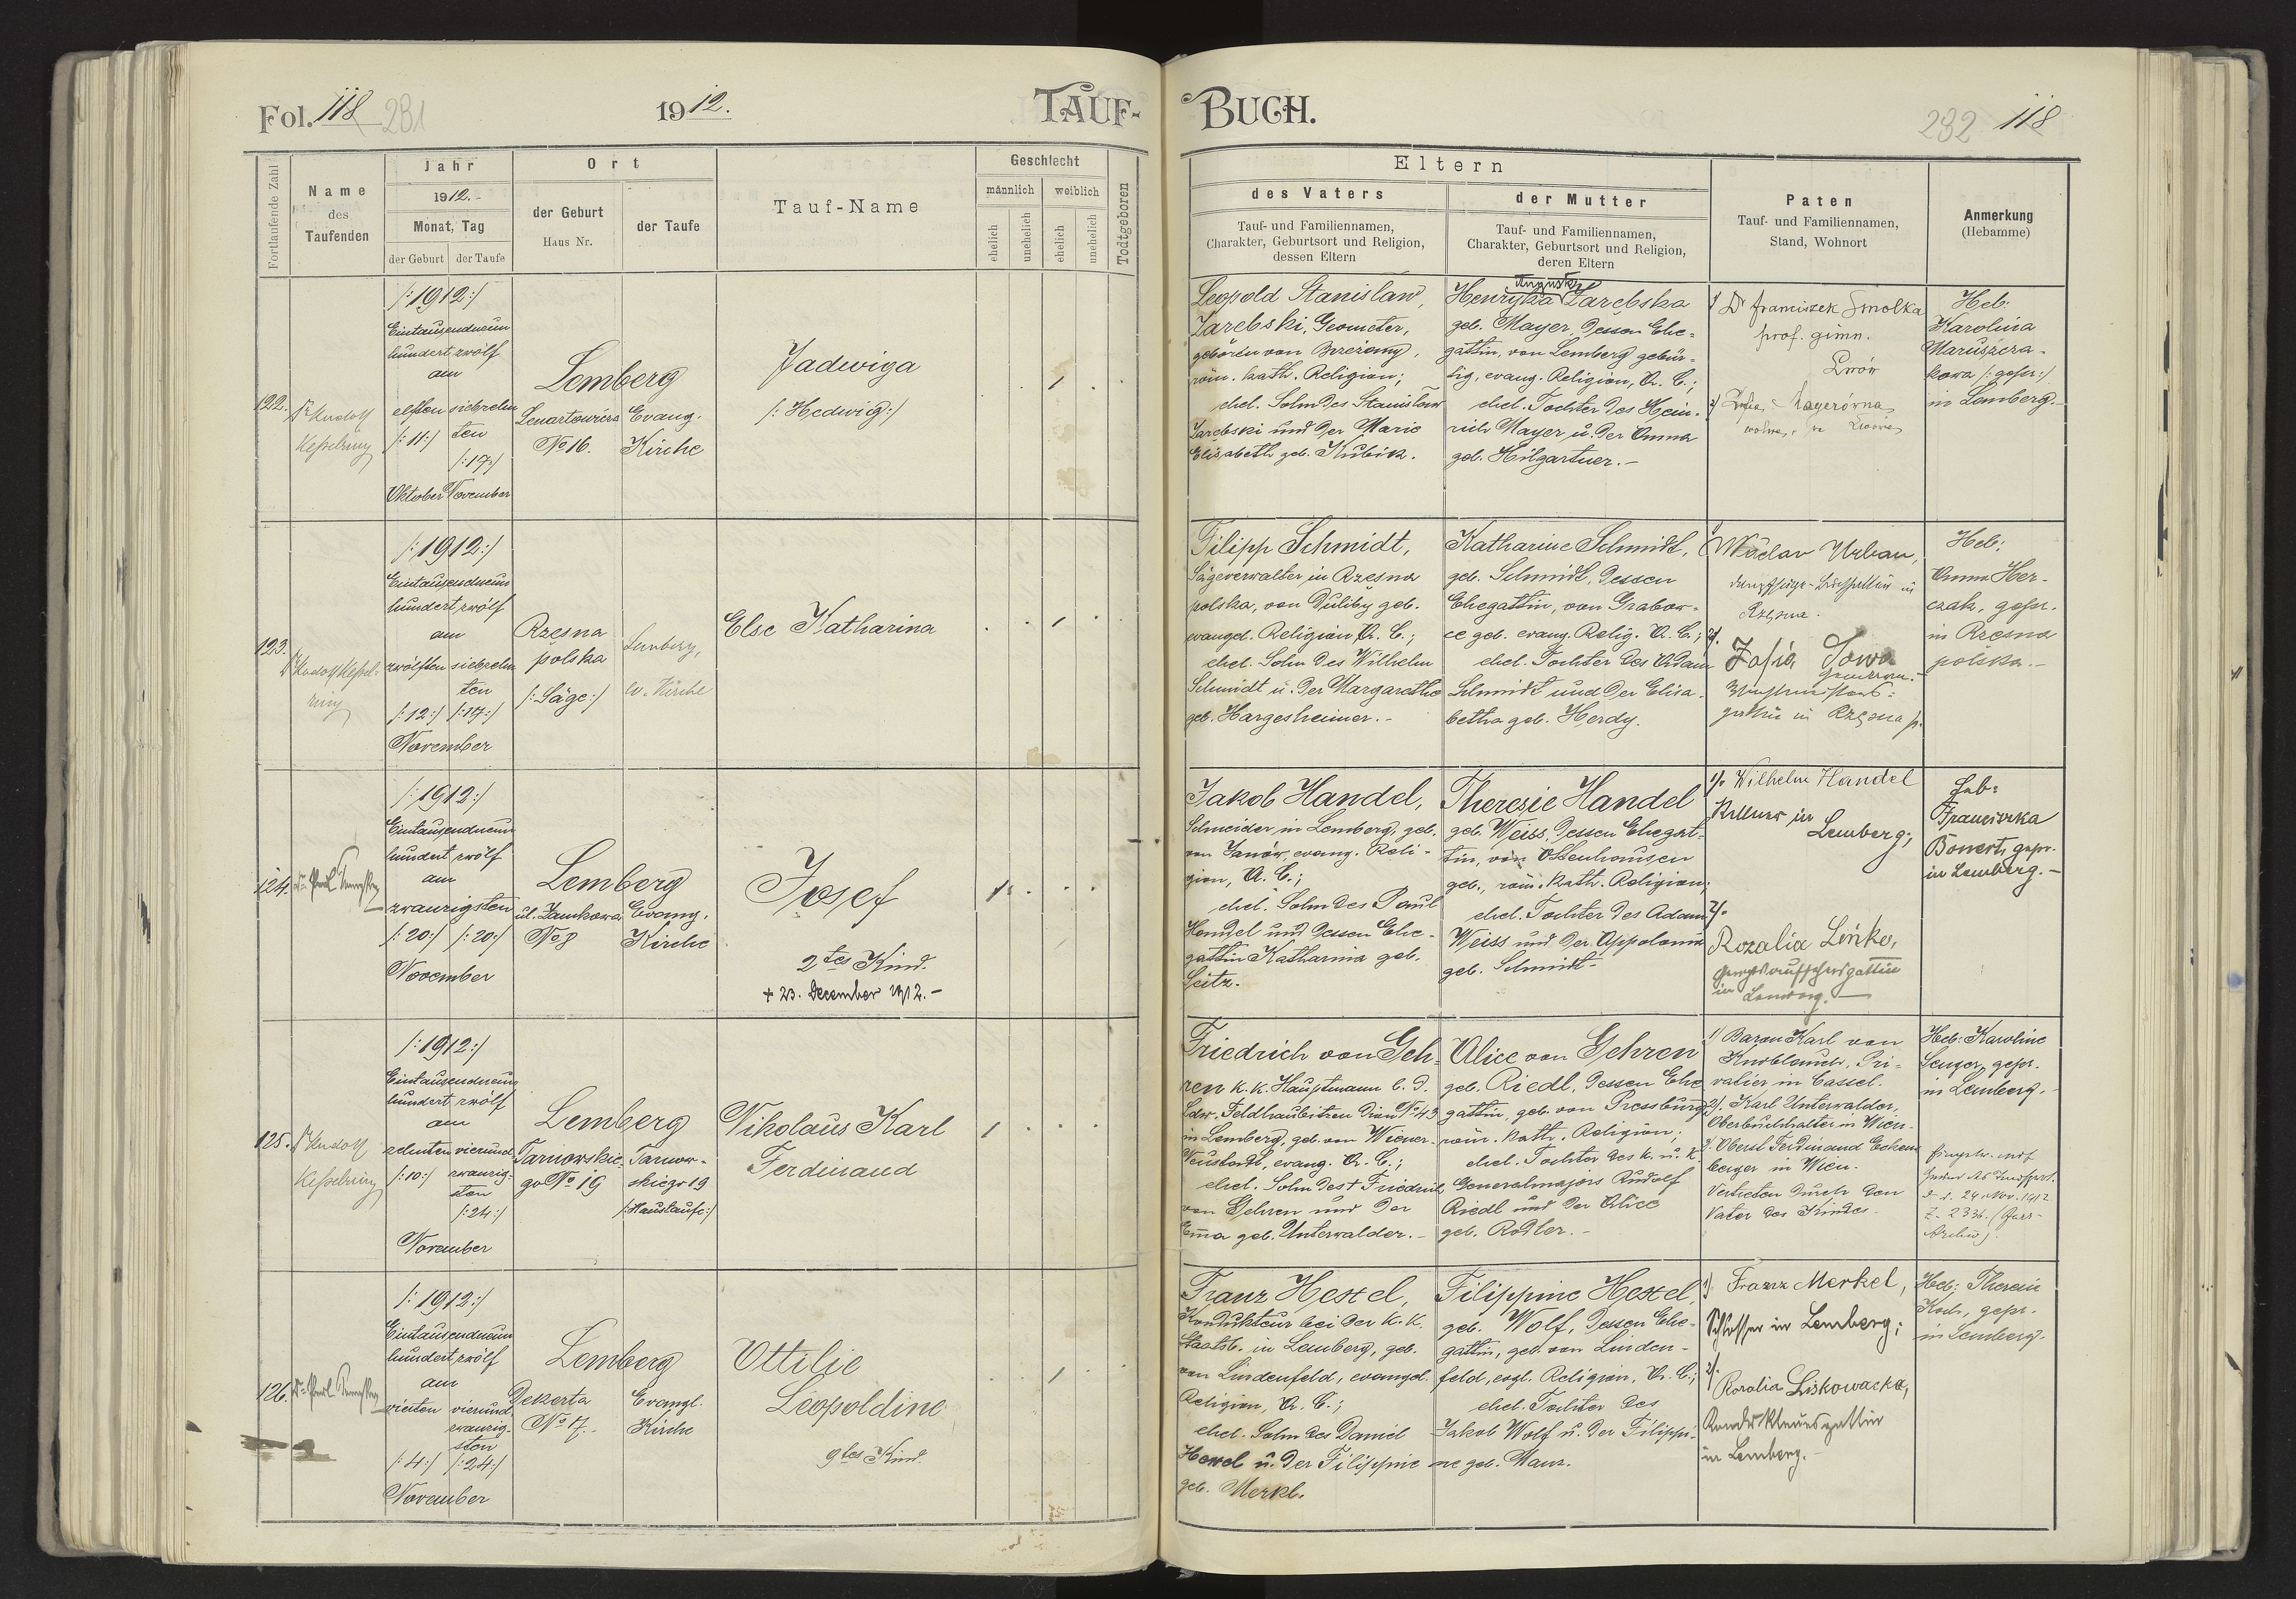 Fol. 118 231
1912.
TAUF-
Fortlaufende Zahl
Name
des
Taufenden
Jahr
1912.-
Monat, Tag
der Geburt
der Taufe
Ort
der Geburt
Haus Nr.
der Taufe
Tauf-Name
Geschlecht
männlich
weiblich
ehelich
unehelich
ehelich
unehelich
Todtgeboren
122.
Dr Rudolf
Kesselring
/:1912:/
Eintausendneun
hundert zwölf
am
elften siebzehn
/:11:/ ten
/:17:/
Oktober November
Lemberg
Lenartowicza
No 16.
Evang.
Kirche
Jadwiga
/:Hedwig:/
123.
Dr Rudolf Kessel-
ring
/:1912:/
Eintausendneun
hundert zwölf
am
zwölften siebzehn
ten
/:12:/ /:17:/
November
Rzesna
polska
/:Säge:/
Lemberg,
ev. Kirche
Else Katharina
124.
/:1912:/
Eintausendneun
hundert zwölf
am
zwanzigsten
/:20:/ /:20:/
November
Lemberg
ul. Zamkowa
No 8
Evang.
Kirche
Josef
2tes Kind.
+ 23. December 1912.-
125.
Dr Rudolf
Kesselring
/:1912:/
Eintausendneun
hundert zwölf
am
zehnten vierund
/:10:/ zwanzig-
sten
/:24:/
November
Lemberg
Tarnowskie-
go No 19
Tarnow-
skiego 19
/:Haustaufe:/
Nikolaus Karl
Ferdinand
126.
/:1912:/
Eintausendneun
hundert zwölf
am
vierten vierund
zwanzig-
sten
/:4:/ /:24:/
November
Lemberg
Dekerta
No 17.
Evangl.
Kirche
Ottilie
Leopoldine
9tes Kind.
BUCH.
232 118
Eltern
des Vaters
Tauf- und Familiennamen,
Charakter, Geburtsort und Religion,
dessen Eltern
der Mutter
Tauf- und Familiennamen,
Charakter, Geburtsort und Religion,
deren Eltern
Paten
Tauf- und Familiennamen,
Stand, Wohnort
Anmerkung
(Hebamme)
Leopold Stanislaw,
Zarebski, Geometer,
geboren von Brzeżany,
röm. kath. Religion;
ehel. Sohn des Stanislaw
Zarebski und der Marie
Elisabeth geb. Kubik.
Henryka Zarebska
geb. Mayer, dessen Ehe-
gattin, von Lemberg gebür-
tig, evang. Religion, A. C.;
ehel. Tochter des Hein-
rich Mayer u. der Emma
geb. Hilgartner.-
1/ Dr Franciszek Smolka
prof. gimn.
Lwów
2/ Mayerówna
Heb:
Karolina
Maruszcza-
kowa /:gepr:/
in Lemberg.-
Filipp Schmidt,
Sägeverwalter in Rzesna
polska, von Duliby geb.
evangel. Religion A. C.;
ehel. Sohn des Wilhelm
Schmidt u. der Margarethe
geb. Hargesheimer.-
Katharine Schmidt,
geb. Schmidt, dessen
Ehegattin, von Grabow-
ce geb. evang. Relig. A. C.;
ehel. Tochter des Adam
Schmidt und der Elisa-
betha geb. Herdy.
Waclav Urban,
Rzęsna.
2/.
Zofia Sowa
gattin in Rzęsna p.
Heb:
Anna Her-
czak, gepr.
in Rzesna
polska.-
Jakob Handel,
Schneider in Lemberg, geb.
von Janów, evang. Reli-
gion, A. C.;
ehel. Sohn des Paul
Handel und dessen Ehe-
gattin Katharina geb.
Seitz.
Theresie Handel
geb. Weiss, dessen Ehegat-
tin, von Ottenhausen
geb., röm. kath. Religion;
ehel. Tochter des Adam
Weiss und der Appolonia
geb. Schmidt-
1/. Wilhelm Handel
Kellner in
Lemberg;
2/.
Rozalia Linke,
in Lemberg.-
Heb:
Franciszka
Bonert, gepr.
in Lemberg.-
Friedrich von Geh-
ren k. k. Hauptmann b. d.
Ldw. Feldhaubitzen Divon No 43
in Lemberg, geb. von Wiener-
Neustadt, evang. A. C.;
ehel. Sohn des + Friedrich
von Gehren und der
Emma geb. Unterwalder.-
Alice von Gehren
geb. Riedl, dessen Ehe
gattin, geb. von Pressburg,
röm. kath. Religion;
ehel. Tochter des k. u. k.
Generalmajors Rudolf
Riedl und der Alice
geb. Rodler.-
1/ Baron Karl von
Knoblauch, Pri-
vatier in Cassel.
2/. Karl Unterwalder,
Oberbuchhalter in Wien.
3/. Oberst Ferdinand Eckens
berger in Wien.
Vertreten durch den
Vater des Kindes.
Heb: Karoline
Senger, gepr.
in Lemberg.-
24. Nov. 1912
Franz Hexel,
Kondukteur bei der k. k.
Staatsb. in Lemberg, geb.
von Lindenfeld, evangel.
Religion, A. C.;
ehel. Sohn des Daniel
Hexel u. der Filippine
geb. Merkl.
Filippine Hexel,
geb. Wolf, dessen Ehe-
gattin, geb. von Linden-
feld, evgl. Religion, A. C.;
ehel. Tochter des
Jakob Wolf u. der Filippi-
ne geb. Manz.
1/ Franz Merkel,
Schlosser in Lemberg;
2/.
Rozalia Liskowacka,
Kondukteursgattin
in Lemberg.-
Heb: Therese
Koch, gepr.
in Lemberg.